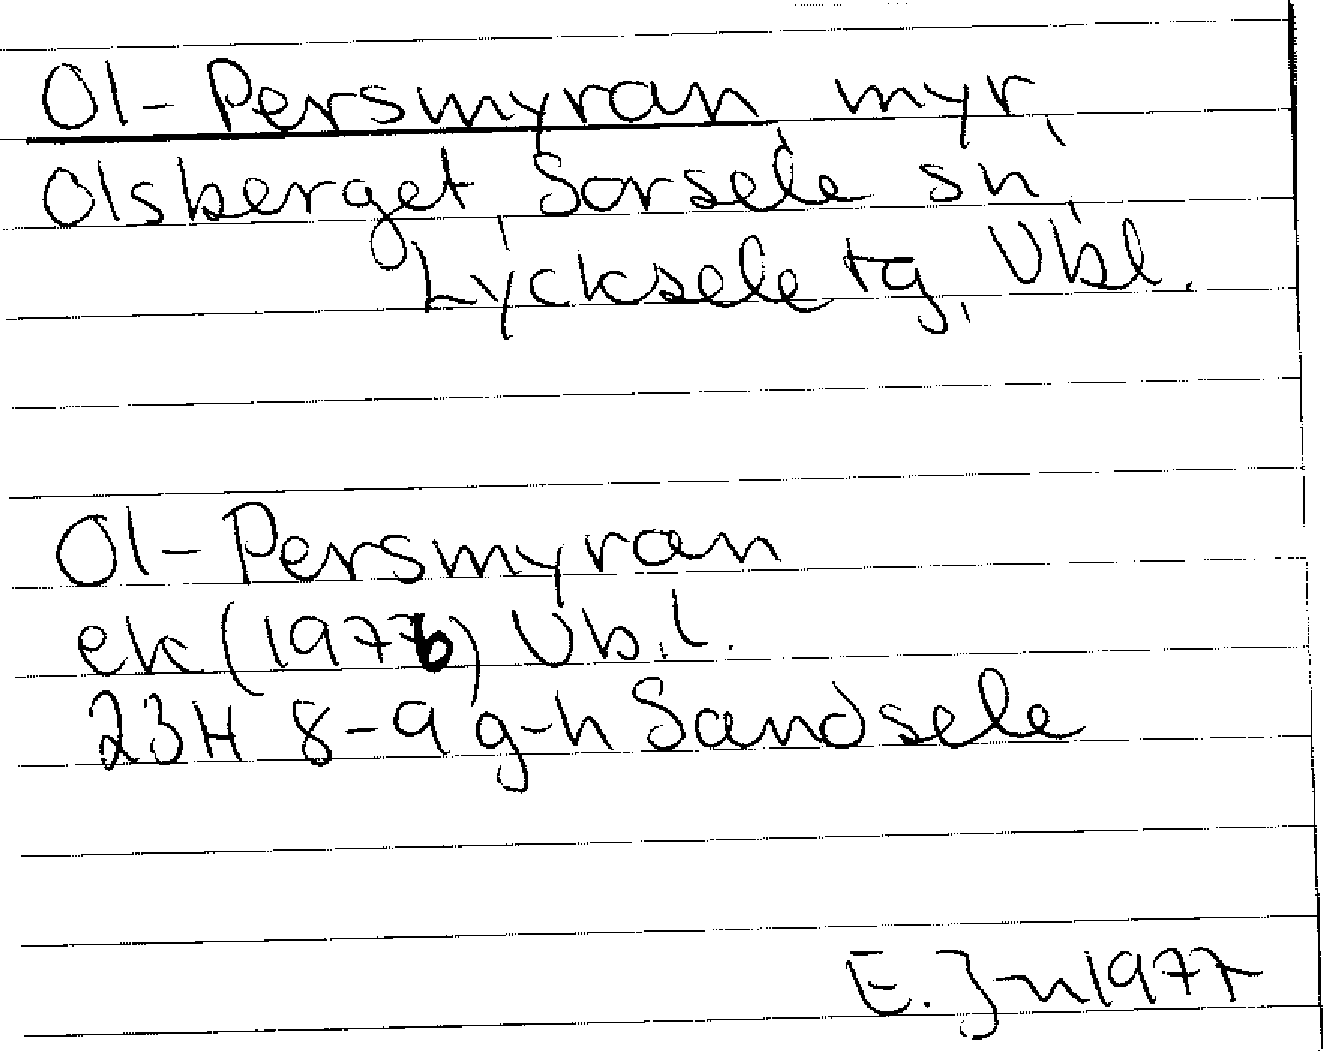 Ol-Persmyran myr,
Olsberget Sorsele sn,
Lycksele tg, Vbl.
Ol-Persmyran
ek (1976) Vb.l.
23H 8-9 g-h Sandsele
E. J-n 1977